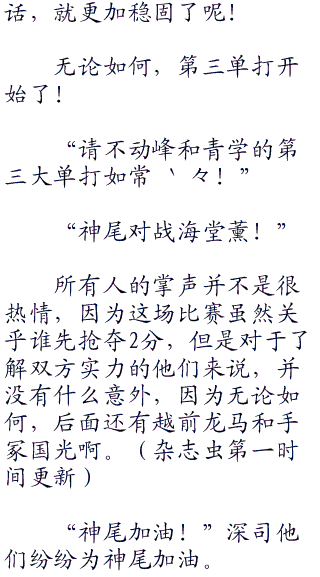 话，就更加稳固了呢！
无论如何，第三单打开
始了！
“请不动峰和青学的第
三大单打如常 丶 々！”
“神尾对战海堂薰！”
所有人的掌声并不是很
热情，因为这场比赛虽然关
乎谁先抢夺2分，但是对于了
解双方实力的他们来说，并
没有什么意外，因为无论如
何，后面还有越前龙马和手
冢国光啊。（杂志虫第一时
间更新）
“神尾加油！”深司他
们纷纷为神尾加油。